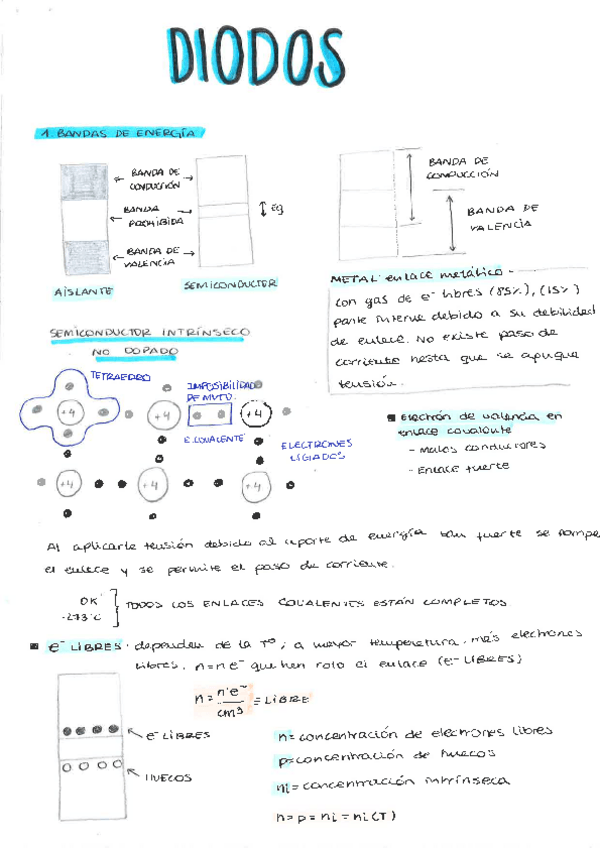 DIODOS
1. BANDAS DE ENERGÍA
BANDA DE
CONDUCCIÓN
BANDA
PROHIBIDA
BANDA DE
VALENCIA
Eg
AISLANTE
SEMICONDUCTOR
BANDA DE
CONDUCCIÓN
BANDA DE
VALENCIA
METAL: enlace metálico -
con gas de e⁻ libres (85%), (15%)
parte interne debido a su debilidad
de enlace. No existe paso de
corriente hasta que se aplique
tensión.
SEMICONDUCTOR INTRÍNSECO
NO DOPADO
TETRAEDRO
IMPOSIBILIDAD
DE MVTO.
+4
+4
+4
E. COVALENTE
ELECTRONES
LIGADOS
+4
+4
+4
Electrón de valencia en
enlace covalente
- Malos conductores
- Enlace fuerte
Al aplicarle tensión debido al aporte de energía tan fuerte se rompe
el enlace y se permite el paso de corriente.
0K
-273°C
TODOS LOS ENLACES COVALENTES ESTÁN COMPLETOS
e⁻ LIBRES: dependen de la Tª; a mayor temperatura, más electrones
libres. n = nº e⁻ que han roto el enlace (e⁻ LIBRES)
n = nº e⁻ / cm³ ≡ LIBRE
e⁻ LIBRES
HUECOS
n = concentración de electrones libres
p = concentración de huecos
ni = concentración intrínseca
n = p = ni = ni(T)